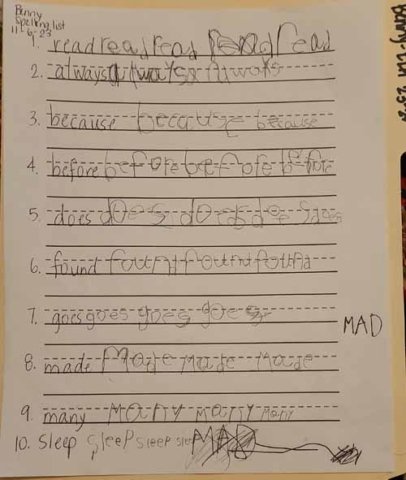 Benny
Spelling list
11-6-23
1. read read read read read
2. always always always
3. because because because
4. before before before before
5. does does does does does
6. found found found found
7. goes goes goes goes
MAD
8. made made made made
9. many many many many
10. Sleep sleep sleep MAD